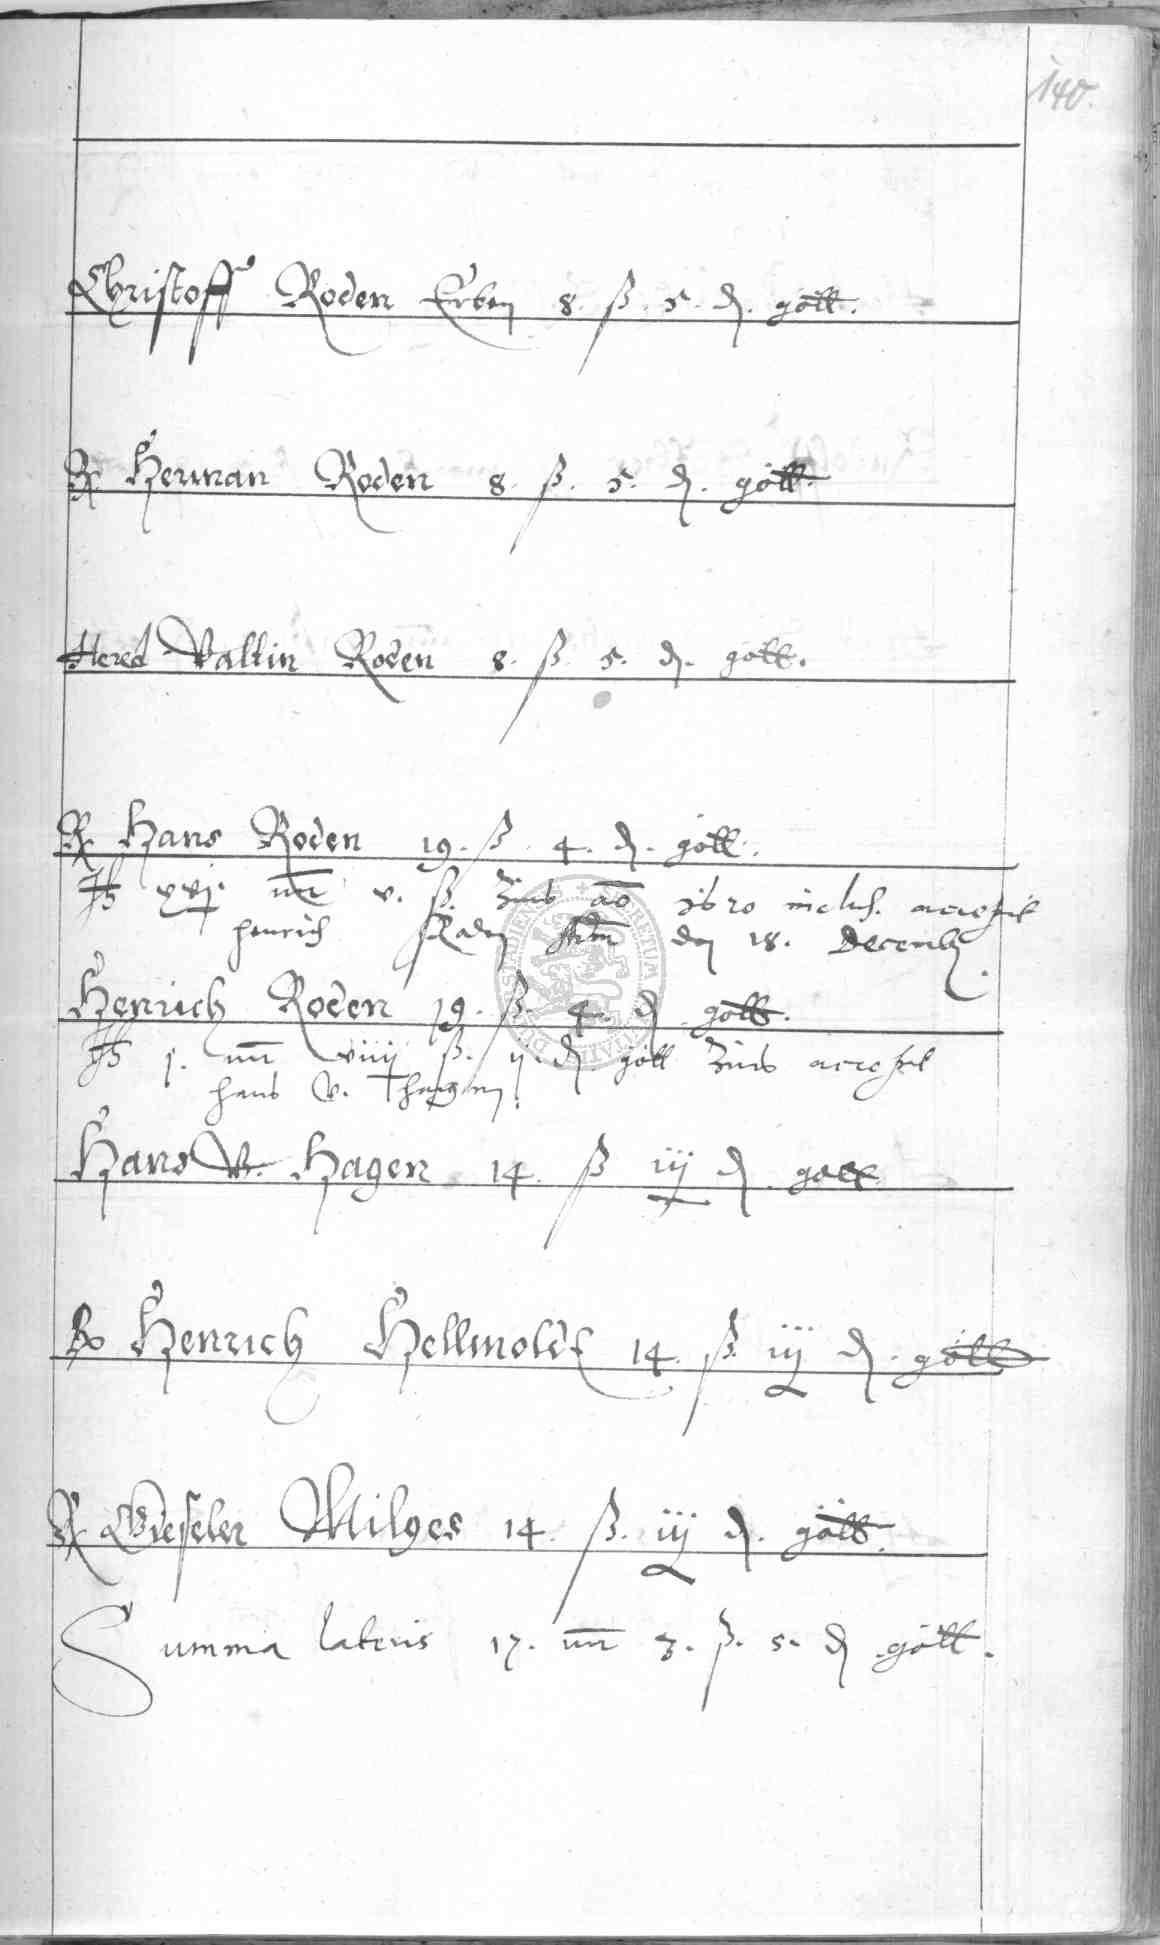 140.
Christoff Roden Erben 8. ß. 5. d. gött.
Herman Roden 8. ß. 5. d. gött.
Hered Valtin Roden 8. ß. 5. d. gött.
Hans Roden 19. ß. 4. d. gött.
xvj. mr v. ß. Zins ao 1620 inclus. accepit
henrich den 18. Decemb.
Henrich Roden 19. ß. 4. d. gött.
j. mr viiij ß. ij. d. gött Zins accepit
hans V.
Hans V. Hagen 14. ß iij d. gött.
Henrich Hellmoldt 14. ß. iij d. gött
Gieseler Milges 14. ß. iij d. gött.
Summa lateris 17. mr 3. ß. 5. d gött.